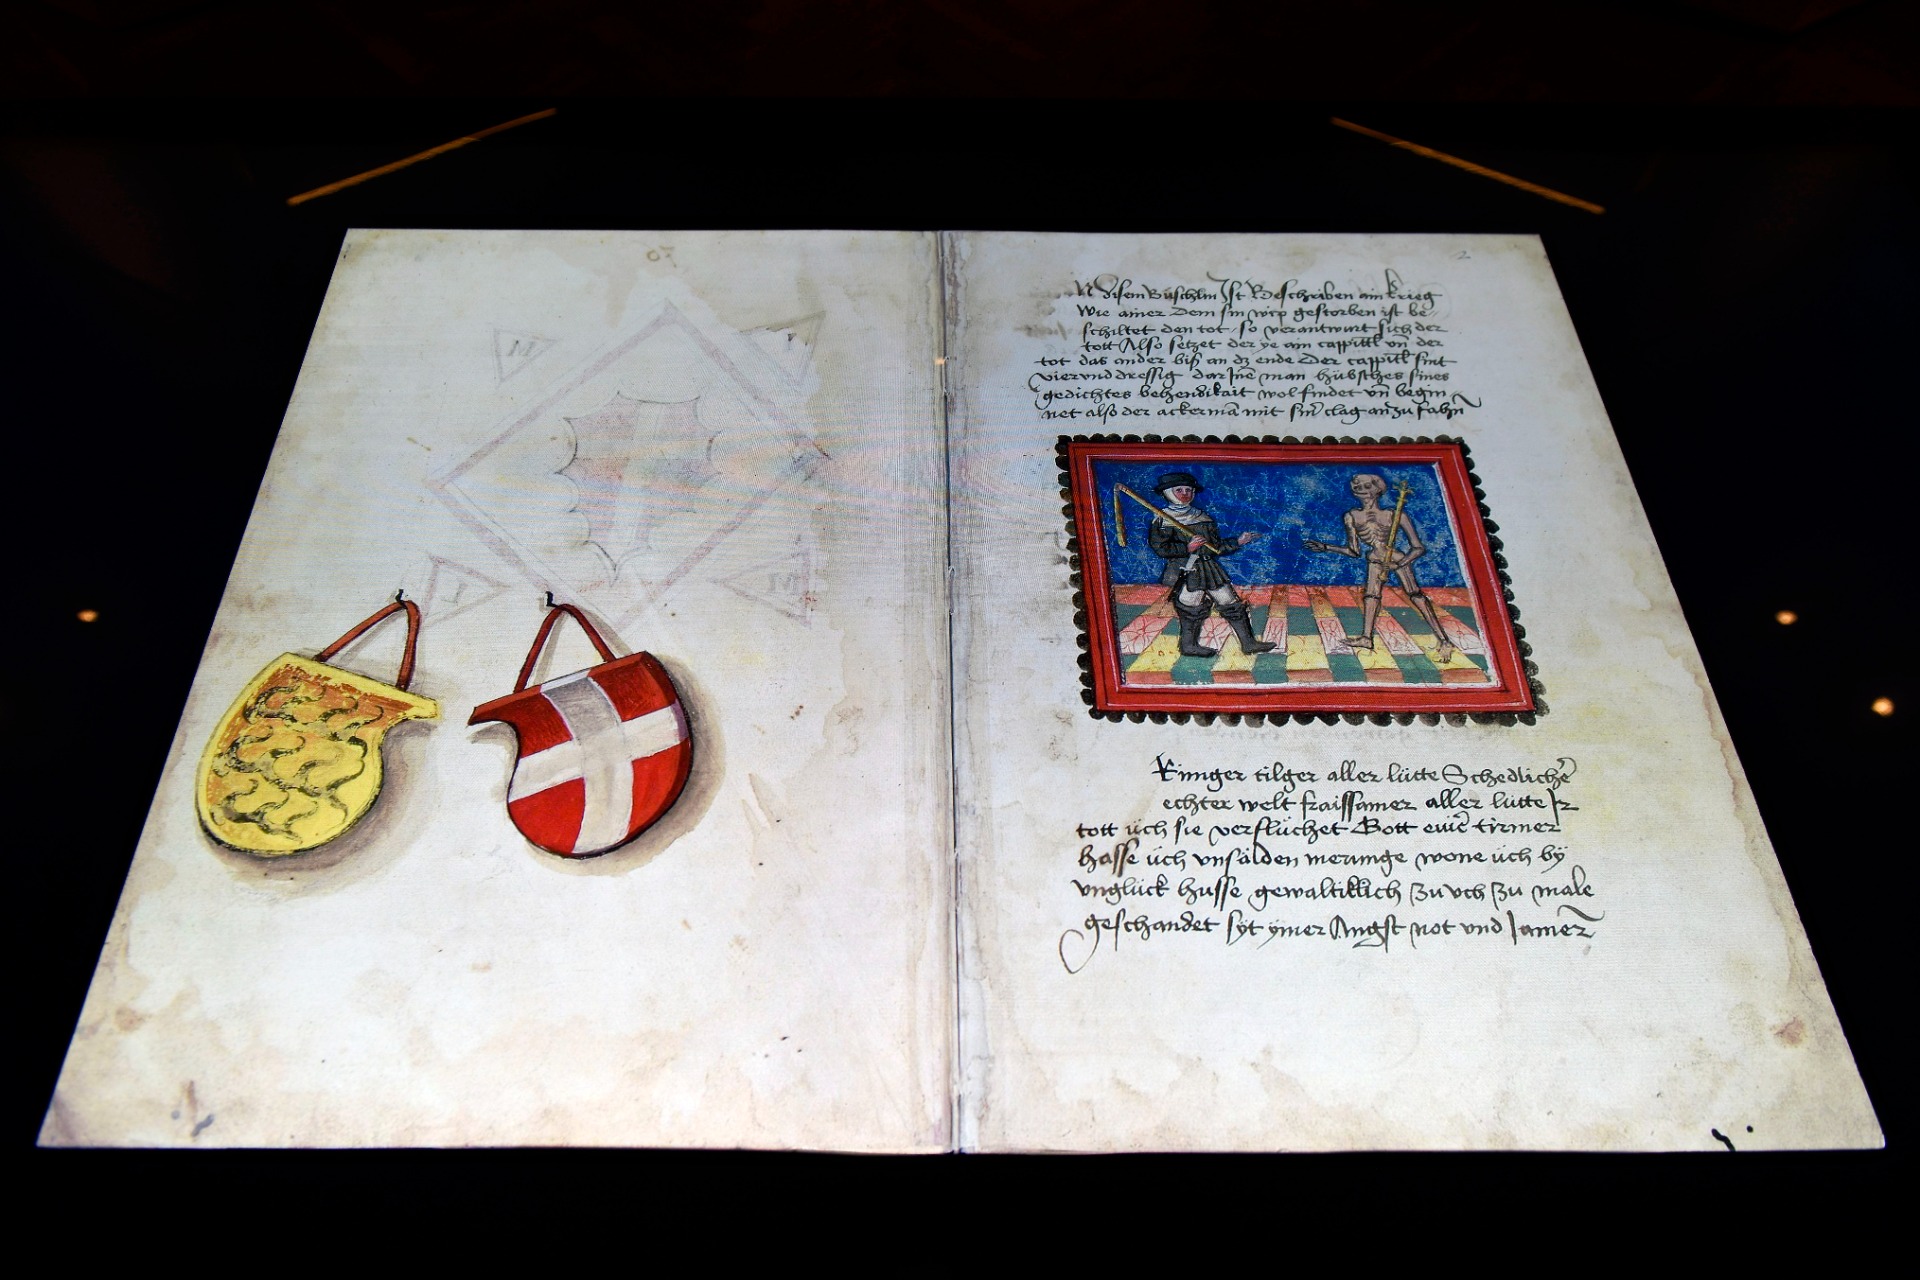 2
N disem Büschlin Ist Beschriben ain krieg
Wie ainer Dem sin wip gestorben ist be-
schiltet den tot · so verantwurt sich der
tott Also setzet der ye ain cappittl vn̄ der
tot das ander biß an dz ende Der cappitl̄ sint
vierunddressig dar Jnē man hübsches sines
gedichtes behendikait wol findet vn̄ begin
net also der ackermā mit sin̄ clag an zu fahn̄
Grimger tilger aller lütte Schedlichē
echter welt fraissamer aller lütte Jr
tott üch sie verflüchet Gott ewiē tirmer
hasse üch vnsälden merunge wone üch by
vnglück husse gewaltiklich zu vch zu male
geschandet syt ymer Angst not vnd Jamer
M
L
M